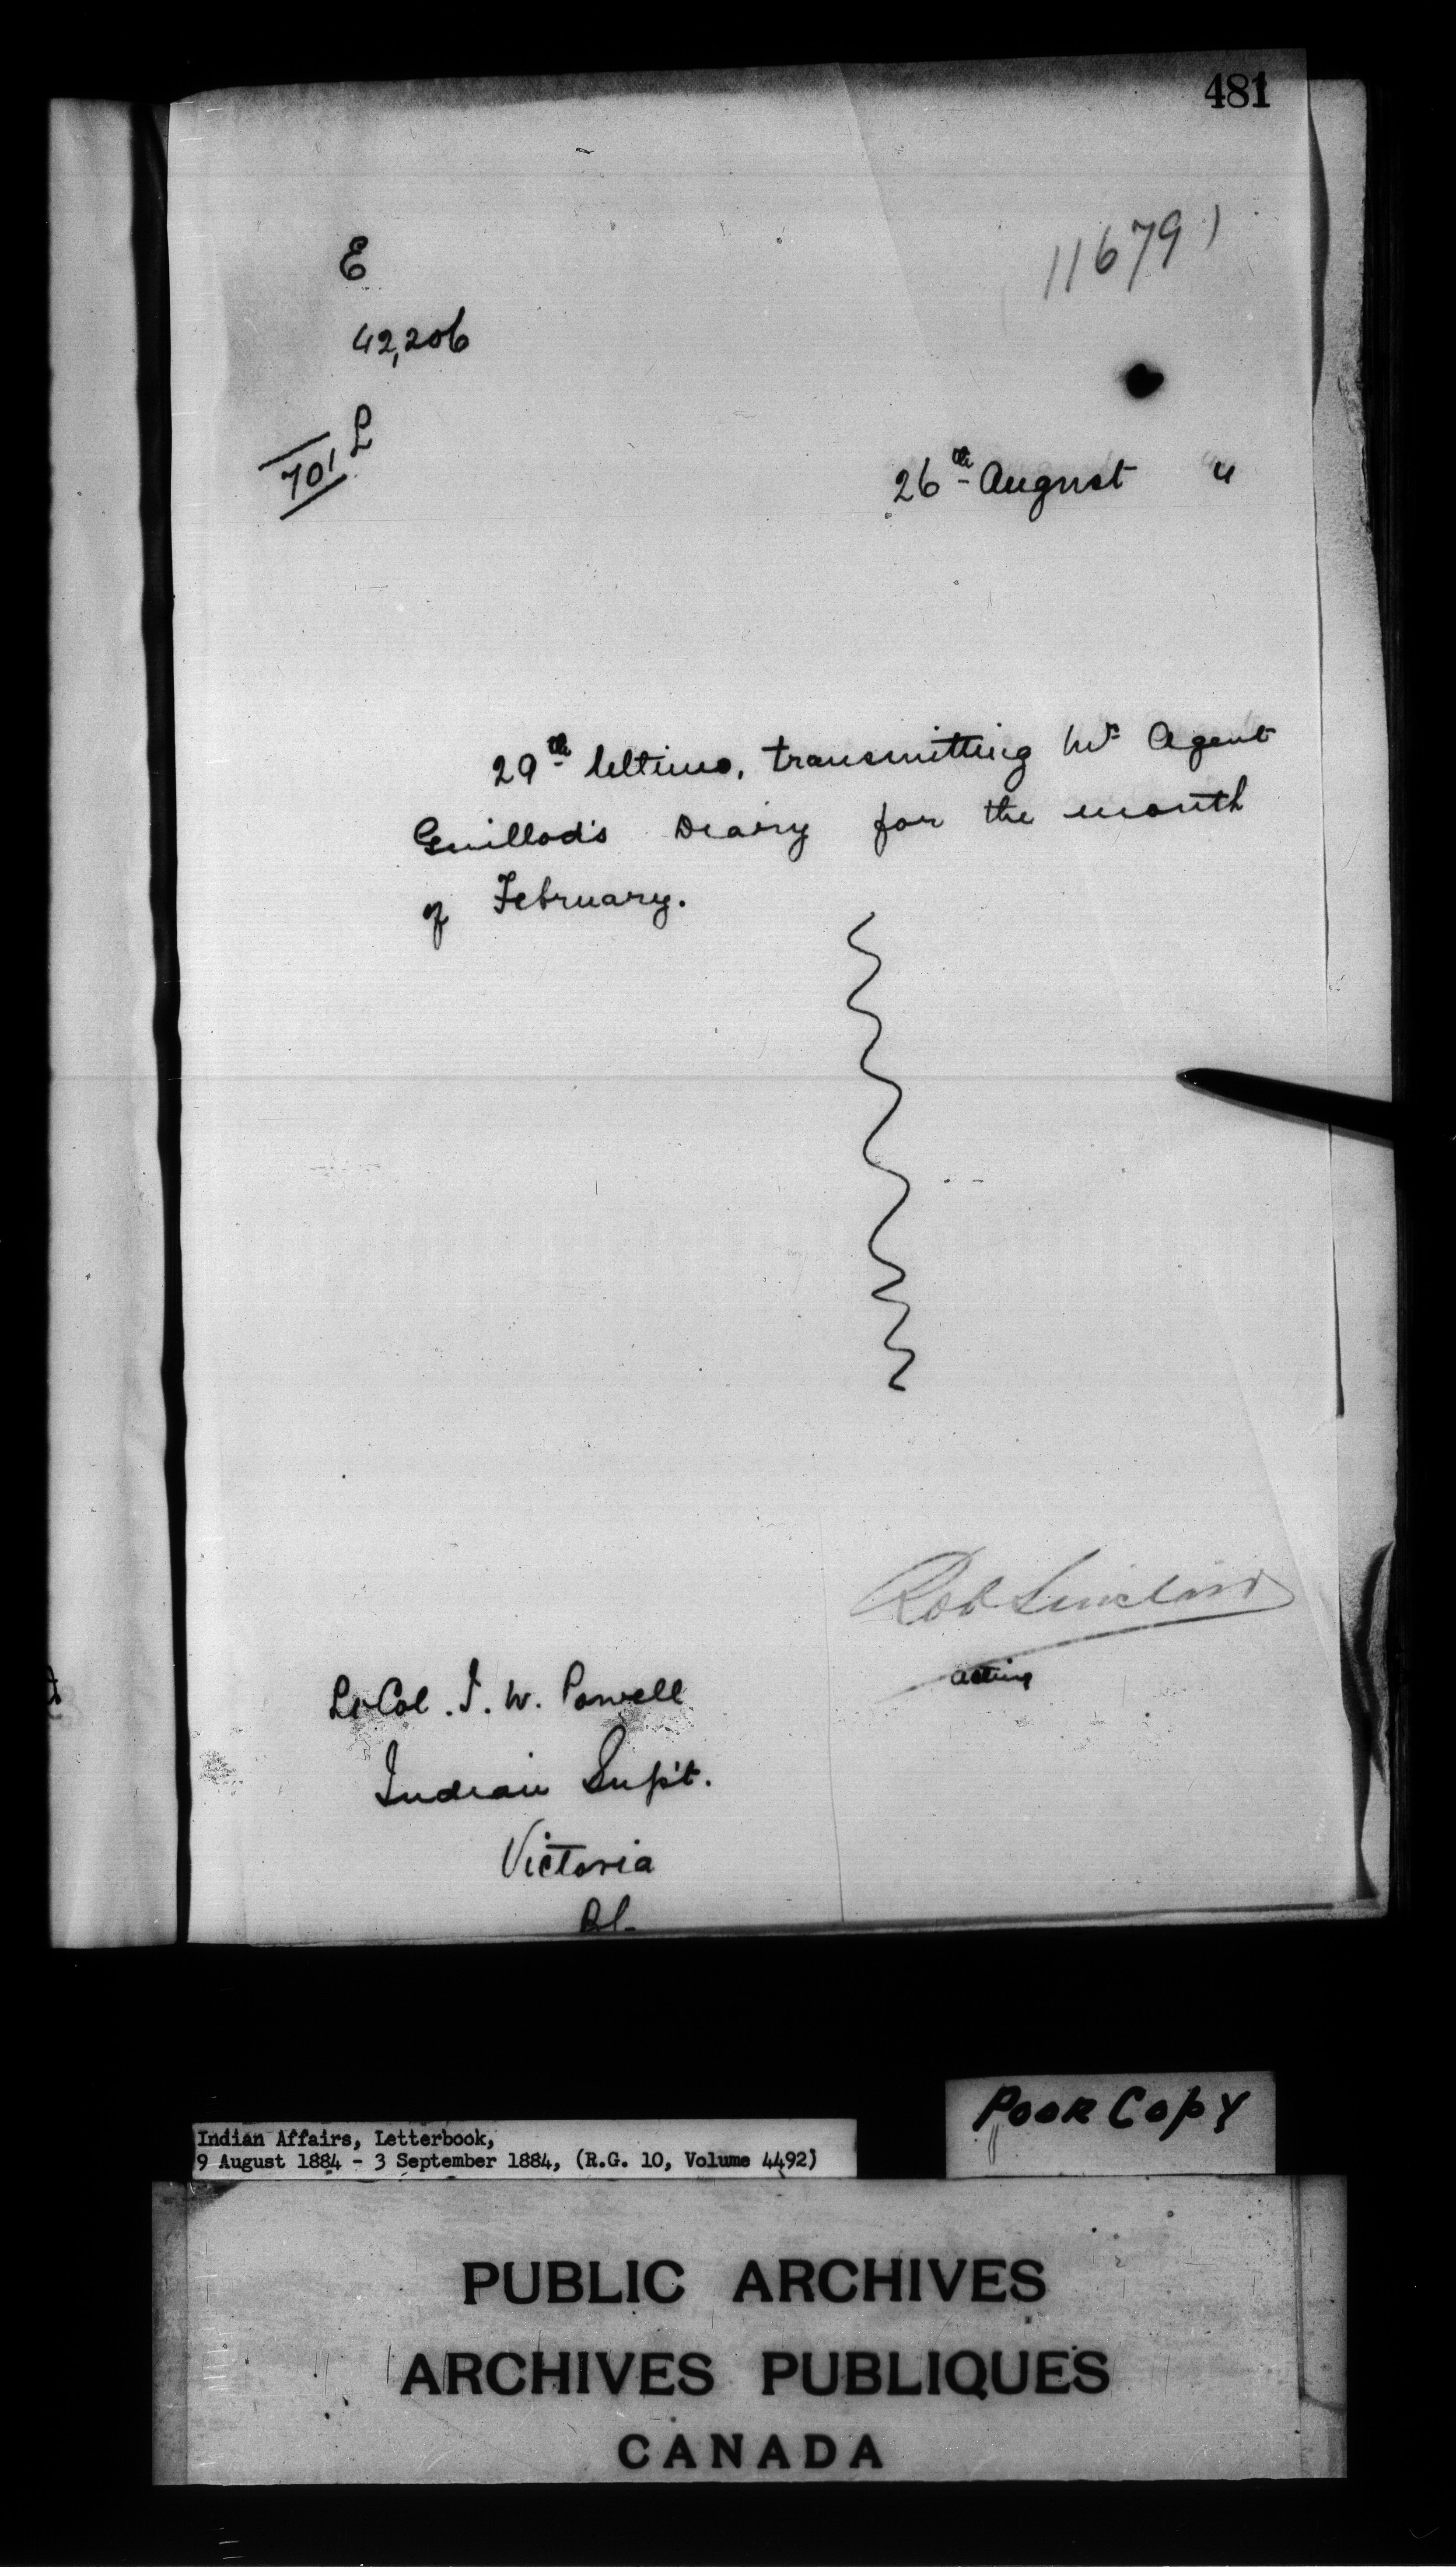 481
E
116791
42,206
L
701
26th August "
29th Ultimo, transmitting Mr Agent
Guillod's Diary for the month
of February.
Rob Sinclair
acting
Lt Col. I. W. Powell
Indian Sup't.
Victoria
BC
Poor Copy
Indian Affairs, Letterbook,
9 August 1884 - 3 September 1884, (R.G. 10, Volume 4492)
PUBLIC ARCHIVES
ARCHIVES PUBLIQUES
CANADA